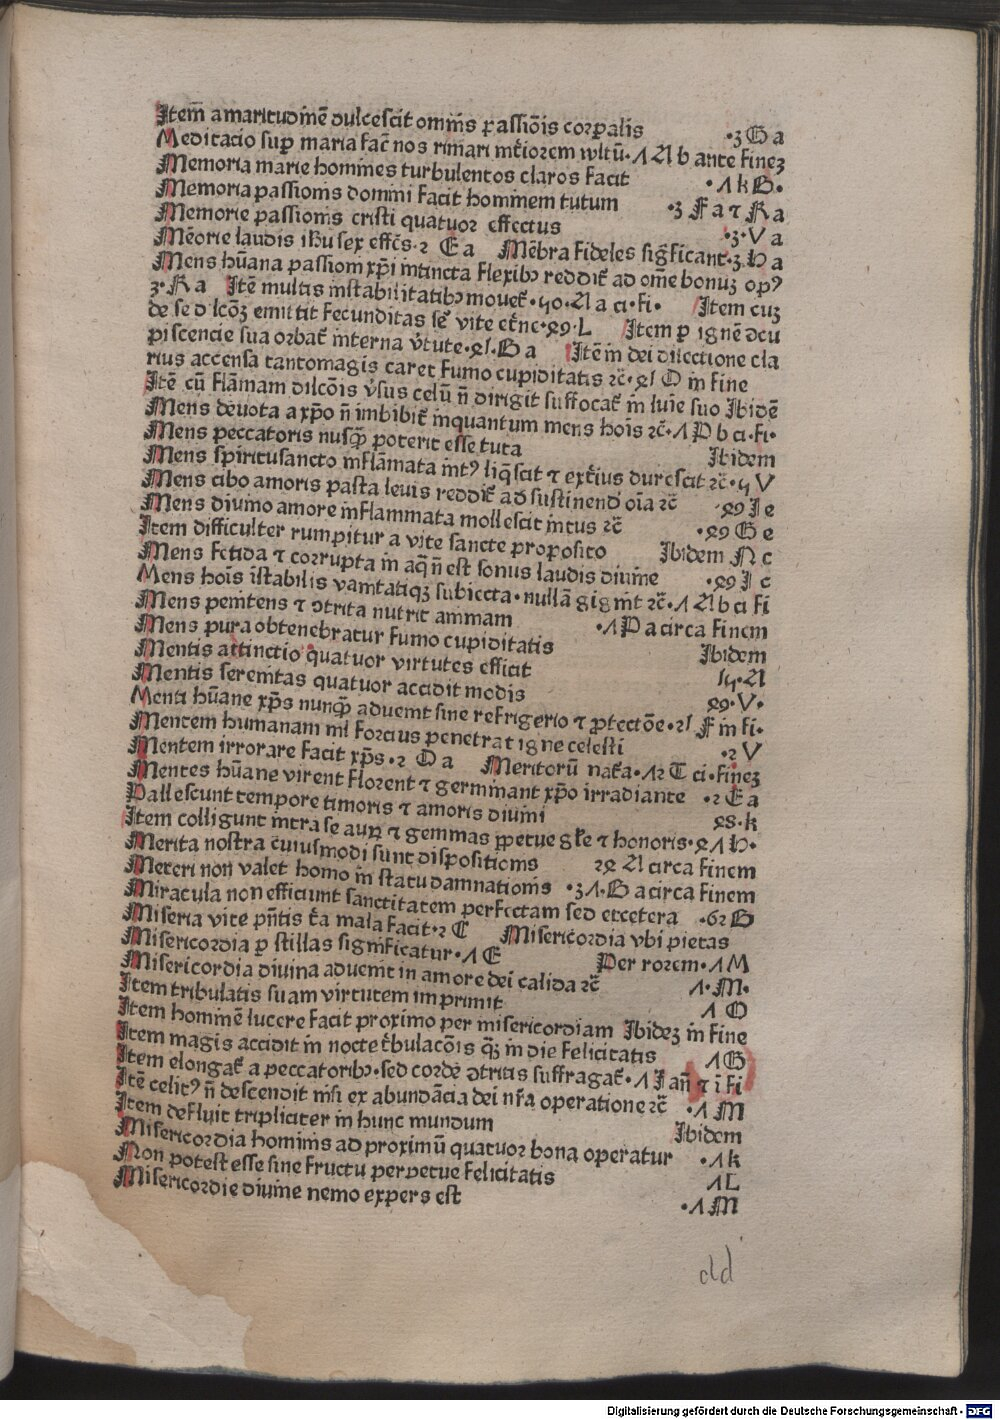 Item̄ amaritudinē dulcescit omnis passiōis corꝑalis ·3 G a
Meditacio suꝑ maria fac̄ nos rimari int̓iorem vultū·1 A b ante finez
Memoria marie homines turbulentos claros facit ·1 k B·
Memoria passionis domini facit hominem tutum ·3 F a ⁊ R a
Memorie passionis cristi quatuor effectus ·3·V a
Mēorie laudis ihū sex effc̄s·2 E a Mēbra fideles sigficant·3 H a
Mens hūana passioni xp̄i intincta flexibꝰ reddit̓ ad om̄e bonuz opꝰ
3·R a Itē multis instabilitatibꝰ mouet̓·50·A a ci·fi· Item cuz
de se dilcōz emittit fecunditas sc̄ vite et̓nc·49·L Item ꝑ ignē dcu
piscencie sua orbat̓ interna v̓tute·41·B a Itē in dei dilectione cla
rius accensa tantomagis caret fumo cupiditatis ⁊c̄·41 O in fine
Itē cū flāmam dilcōis v̓sus celū n̄ dirigit suffocat̓ in luīe suo Ibidē
Mens deuota a xp̄o n̄ imbibit̓ inquantum mens hoīs ⁊c̄·1 P b ci·fi·
Mens peccatoris nusꝙ̄ poterit esse tuta Ibidem
Mens spiritusancto inflāmata intꝰ liq̄scit ⁊ ext̓ius durescit ⁊c̄·45 V
Mens cibo amoris pasta leuis reddit̓ ad sustinend̓ oīa ⁊c̄ ·49 I e
Mens diuino amore inflammata mollescit intus ⁊c̄ ·49 G e
Item difficulter rumpitur a vite sancte proposito Ibidem N c
Mens fetida ⁊ corrupta in aq̄ n̄ est sonus laudis diuine ·49 I c
Mens hoīs īstabilis vanitatiqꝫ subiecta·nullā gignit ⁊c̄·1 A b ci fi
Mens penitens ⁊ ↄtrita nutrit animam ·1 P a circa finem
Mens pura obtenebratur fumo cupiditatis Ibidem
Mentis attinctio quatuor virtutes efficit 15·A
Mentis serenitas quatuor accidit modis 49·V·
Menti hūane xp̄s nunꝙ̄ aduenit sine refrigerio ⁊ ꝓtectōe·21 F in fi·
Mentem humanam nil forcius penetrat igne celesti ·2 V
Mentem irrorare facit xp̄s·2 O a Meritorū nat̓a·12 T ci·finez
Mentes hūane virent florent ⁊ germinant xp̄o irradiante ·2 E a
Pallescunt tempore timoris ⁊ amoris diuini 48·k
Item colligunt intra se auꝝ ⁊ gemmas ꝑpetue gl̄e ⁊ honoris·41 H·
Merita nostra cuiusmodi sunt dispositionis 24 A circa finem
Mereri non valet homo in statu damnationis ·31·B a circa finem
Miracula non efficiunt sanctitatem perfectam sed etcetera ·62 B
Miseria vite pn̄tis t̓a mala facit·2 C Misericordia vbi pietas
Misericordia ꝑ stillas significatur·1 E Per rorem·1 M
Misericordia diuina aduenit in amore dei calida ⁊c̄ 1·M·
Item tribulatis suam virtutem imprimit 1 O
Item hominē lucere facit proximo per misericordiam Ibidez in fine
Item magis accidit in nocte t̓bulacōis ꝙ̄ in die felicitatis 1 G
Item elongat̓ a peccatoribꝰ·sed corde ↄtritis suffragat̓·1 I an̄ ⁊ ī fi
Itē celitꝰ n̄ descendit nisi ex abundācia dei nr̄a operatione ⁊c̄ ·1 M
Item defluit tripliciter in hunc mundum Ibidem
Misericordia hominis ad proximū quatuor bona operatur ·1 k
Non potest esse sine fructu perpetue felicitatis 1 L
Misericordie diuine nemo expers est ·1 M
dd
Digitalisierung gefördert durch die Deutsche Forschungsgemeinschaft - DFG